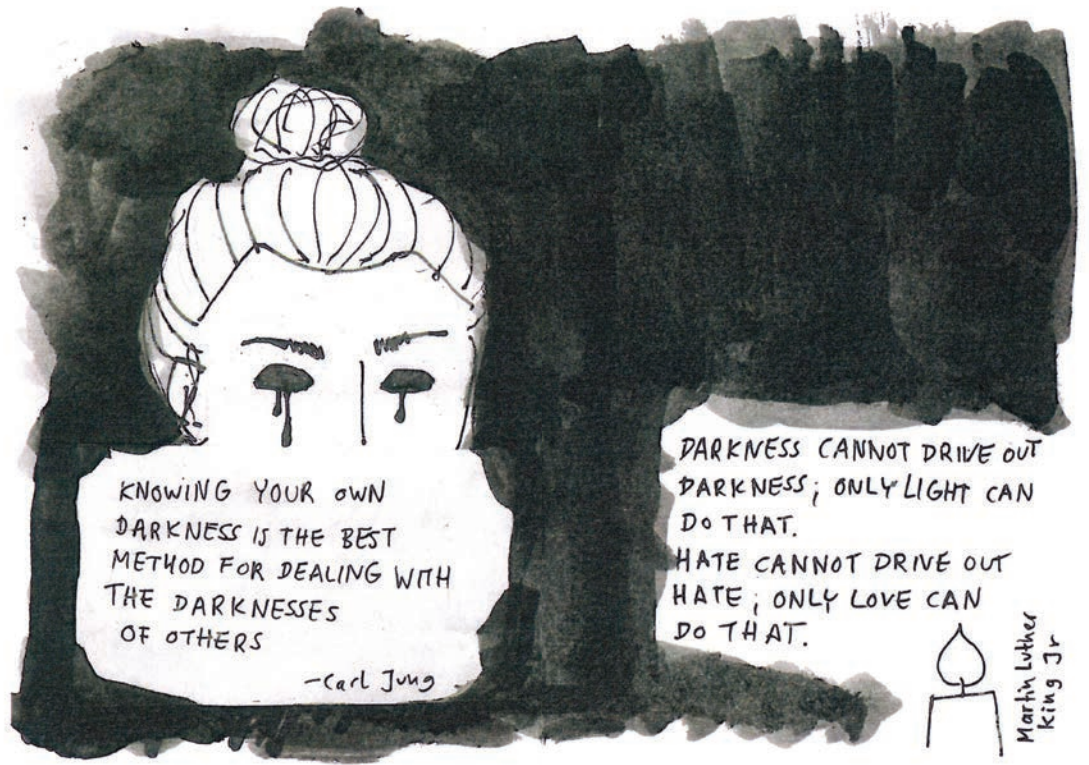 KNOWING YOUR OWN
DARKNESS IS THE BEST
METHOD FOR DEALING WITH
THE DARKNESSES
OF OTHERS
-Carl Jung
DARKNESS CANNOT DRIVE OUT
DARKNESS; ONLY LIGHT CAN
DO THAT.
HATE CANNOT DRIVE OUT
HATE; ONLY LOVE CAN
DO THAT.
Martin Luther
King Jr